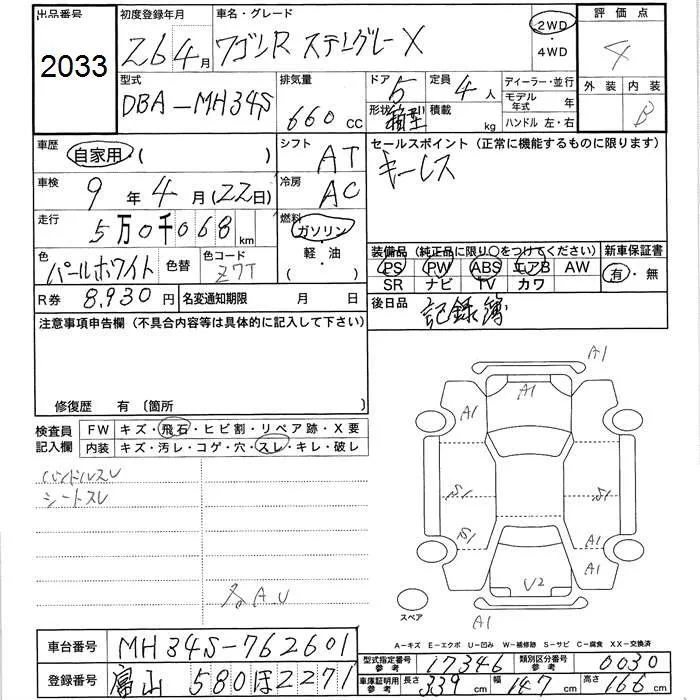 出品番号 初度登録年月 車名・グレード 2WD 評価点
2033 26 4月 ワゴンR スティングレーX ・4WD 4
型式 排気量 ドア 5 定員 4人 ディーラー・並行 外装 内装
DBA-MH34S 660cc 形状 箱型 積載 kg モデル年式 年 B
ハンドル 左・右
車歴 自家用・( ) シフト AT セールスポイント(正常に機能するものに限ります)
車検 9年4月(22日) 冷房 AC キーレス
走行 5万0千068km 燃料 ガソリン
色 パールホワイト 色替 色コード Z7T ・軽・油 ( )
装備品(純正品に限り○をつけてください) 新車保証書
PS PW ABS エアB AW 有・無
SR ナビ TV カワ
R券 8,930円 名変通知期限 月 日 後日品 記録簿
注意事項申告欄(不具合内容等は具体的に記入して下さい)
修復歴 有〔箇所
検査員記入欄 FW キズ・飛石・ヒビ割・リペア跡・X要
内装 キズ・汚レ・コゲ・穴・スレ・キレ・破レ
ハンドルスレ
シートスレ
A.U
A1
A1
A1 A1
S1 S1
S1 A1
A1 U2 A1
A1
スペア
A-キズ E-エクボ U-凹み W-補修跡 S-サビ C-腐食 XX-交換済
車台番号 MH34S-762601
型式指定番号 参考 17346 類別区分番号 参考 0030
登録番号 富山 580 ほ 2271
車庫証明用 参考 長さ 339cm 幅 147cm 高さ 166cm